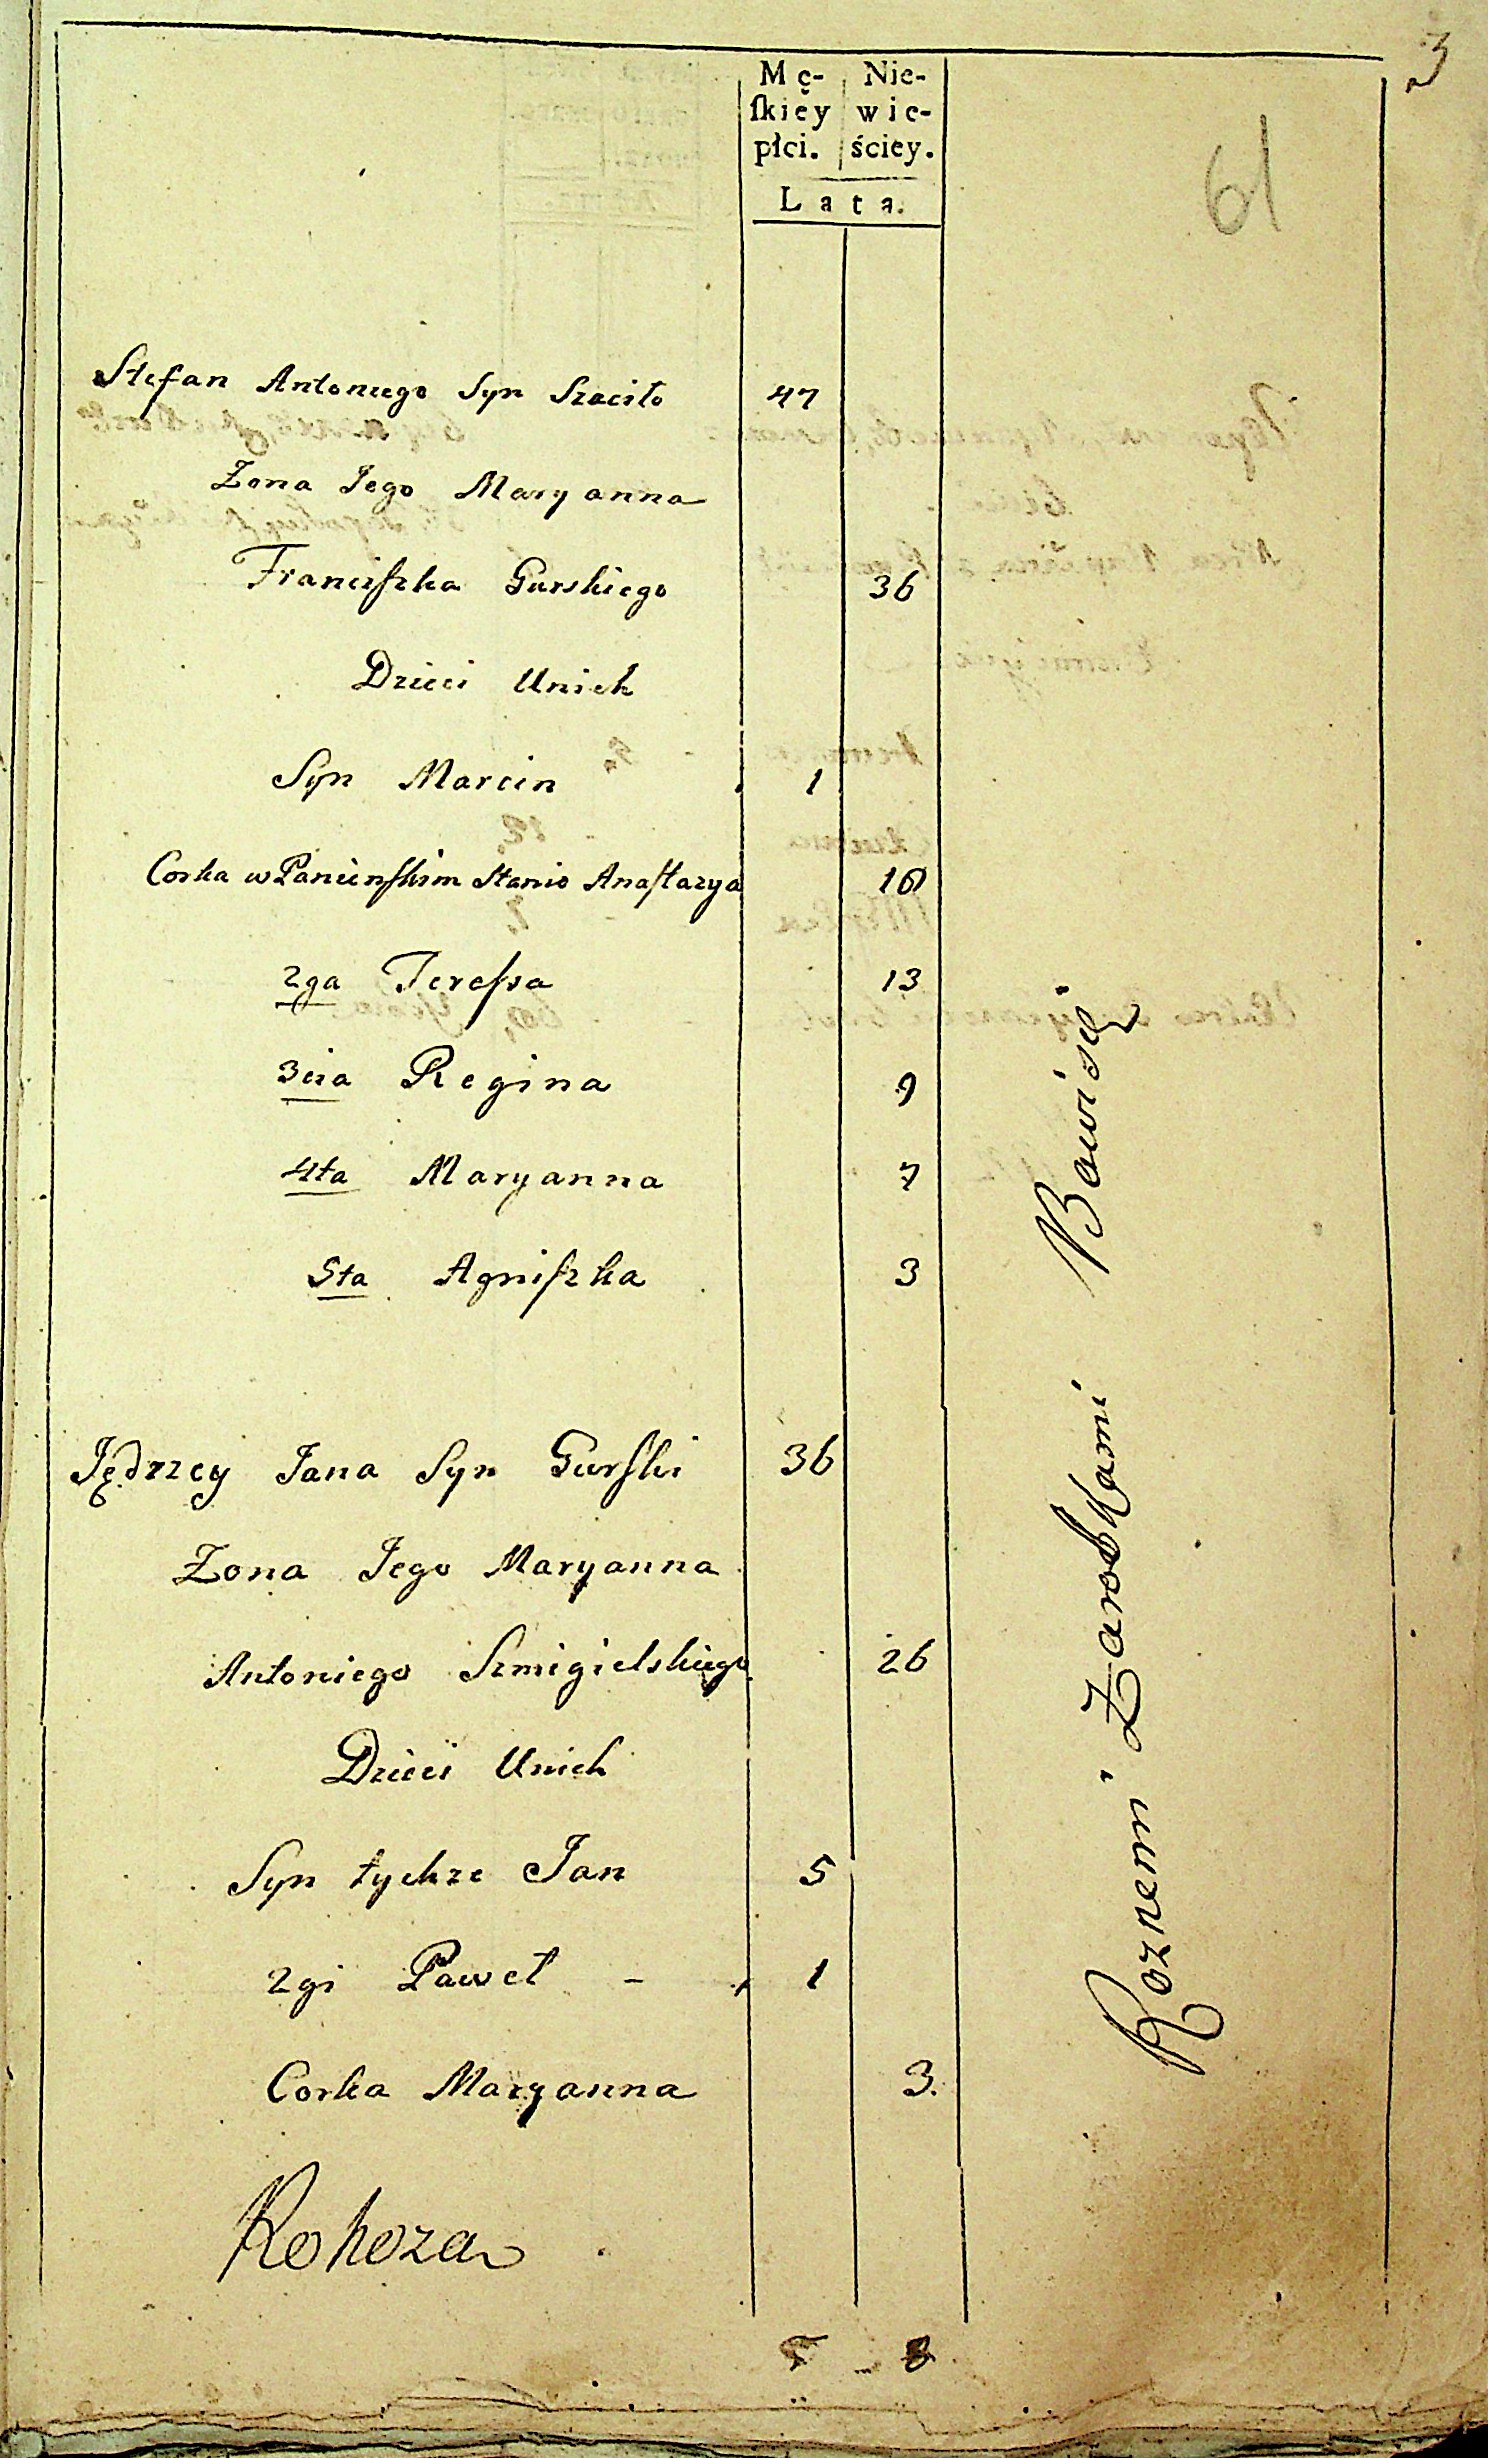 3
61
Mę-
ſkiey
płci.
Nie-
wie-
ściey.
Lata.
Stefan Antoniego Syn Szaciło 47
Żona Jego Maryanna
Franciſzka Gurskiego 36
Dzieci Unich
Syn Marcin 1
Corka w Panienſkim Stanie Anaſtazya 16
2ga Tereſsa 13
3cia Regina 9
4ta Maryanna 7
5ta Agniſzka 3
Jędrzey Jana Syn Gurſki 36
Żona Jego Maryanna
Antoniego Szmigielskiego 26
Dzieci Unich
Syn tychze Jan 5
2gi Paweł - 1
Corka Maryanna 3.
Rohoza
8
Roznemi Zarobkami Bawi się